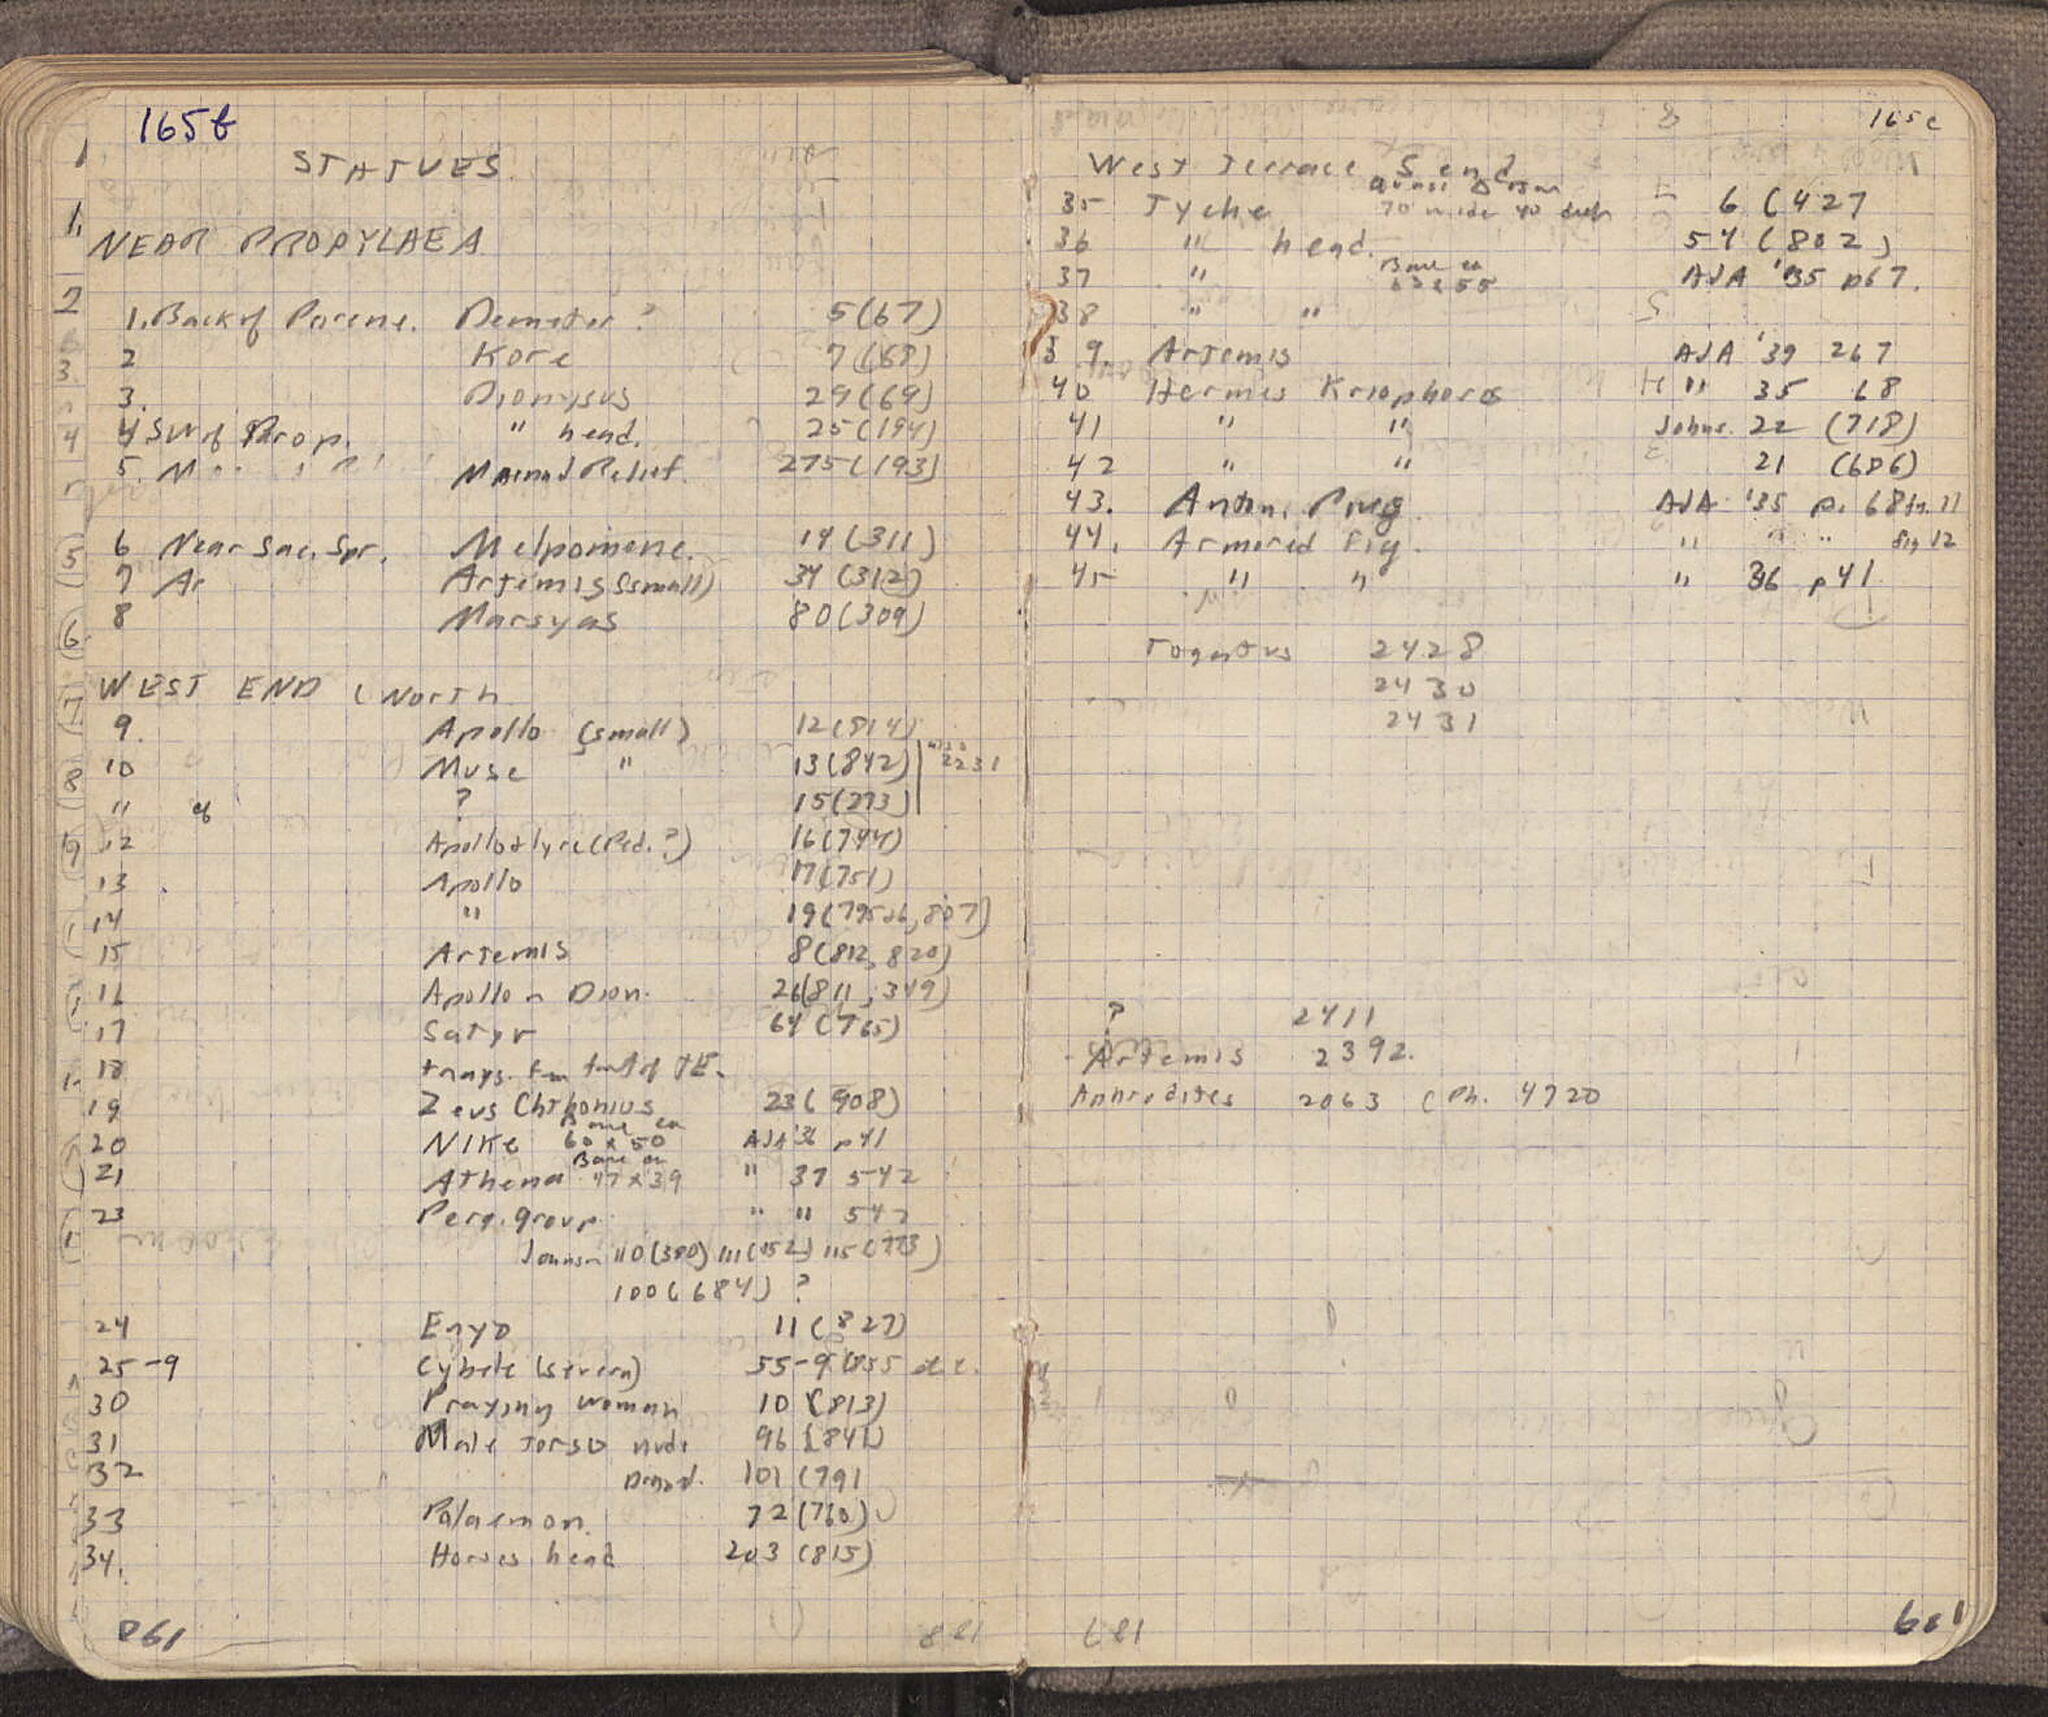 165b
STATUES
NEAR PROPYLAEA
1. Back of Pirene. Demeter? 5(67)
2 Kore 7(68)
3. Dionysus 29(69)
4 SW of Prop. " head. 25(194)
5. Maenad Relief. 275(193)
6 Near Sac. Spr. Melpomene. 14(311)
7 Ar Artemis (small) 34(312)
8 Marsyas 80(309)
WEST END (North
9. Apollo (small) 12(814)
10 Muse " 13(842) 2231
11 ? 15(273)
12 Apollo + lyre (Ped.?) 16(744)
13 Apollo 17(751)
14 " 19(795+6, 807)
15 Artemis 8(812, 820)
16 Apollo n Dion. 26(811, 349)
17 Satyr 64(765)
18 frags. fm front of TE.
19 Zeus Chthonius 23(908)
20 NIKE Base ca 60 x 50 AJA '36 p41
21 Athena Base ca 47 x 39 " 37 542
23 Perg. group " " 542
Johnson 110(380) 111(152) 115(773)
100(684) ?
24 Enyo 11(827)
25-9 Cybele (seven) 55-9(855 etc.
30 Praying woman 10(813)
31 Male Torso nude 96(841)
32 101(791
33 Palaemon. 72(760)
34. Horses head 203(815)
061
881
165c
West Terrace S end
35 Tyche 70 wide 40 deep 6(427
36 " head. 54(802)
37 " Base ca 55 AJA '35 p67.
38 " "
39. Artemis AJA '39 267
40 Hermes Kriophoros " 35 68
41 " " Johns. 22 (718)
42 " " 21 (686)
43. Anton. Pug. AJA '35 p. 68 fig. 11
44. Armored Fig. " " " fig 12
45 " " " 36 p41
Togatus 2428
2430
2431
? 2411
Artemis 2392.
Aphrodites 2063 (Ph. 4720
681